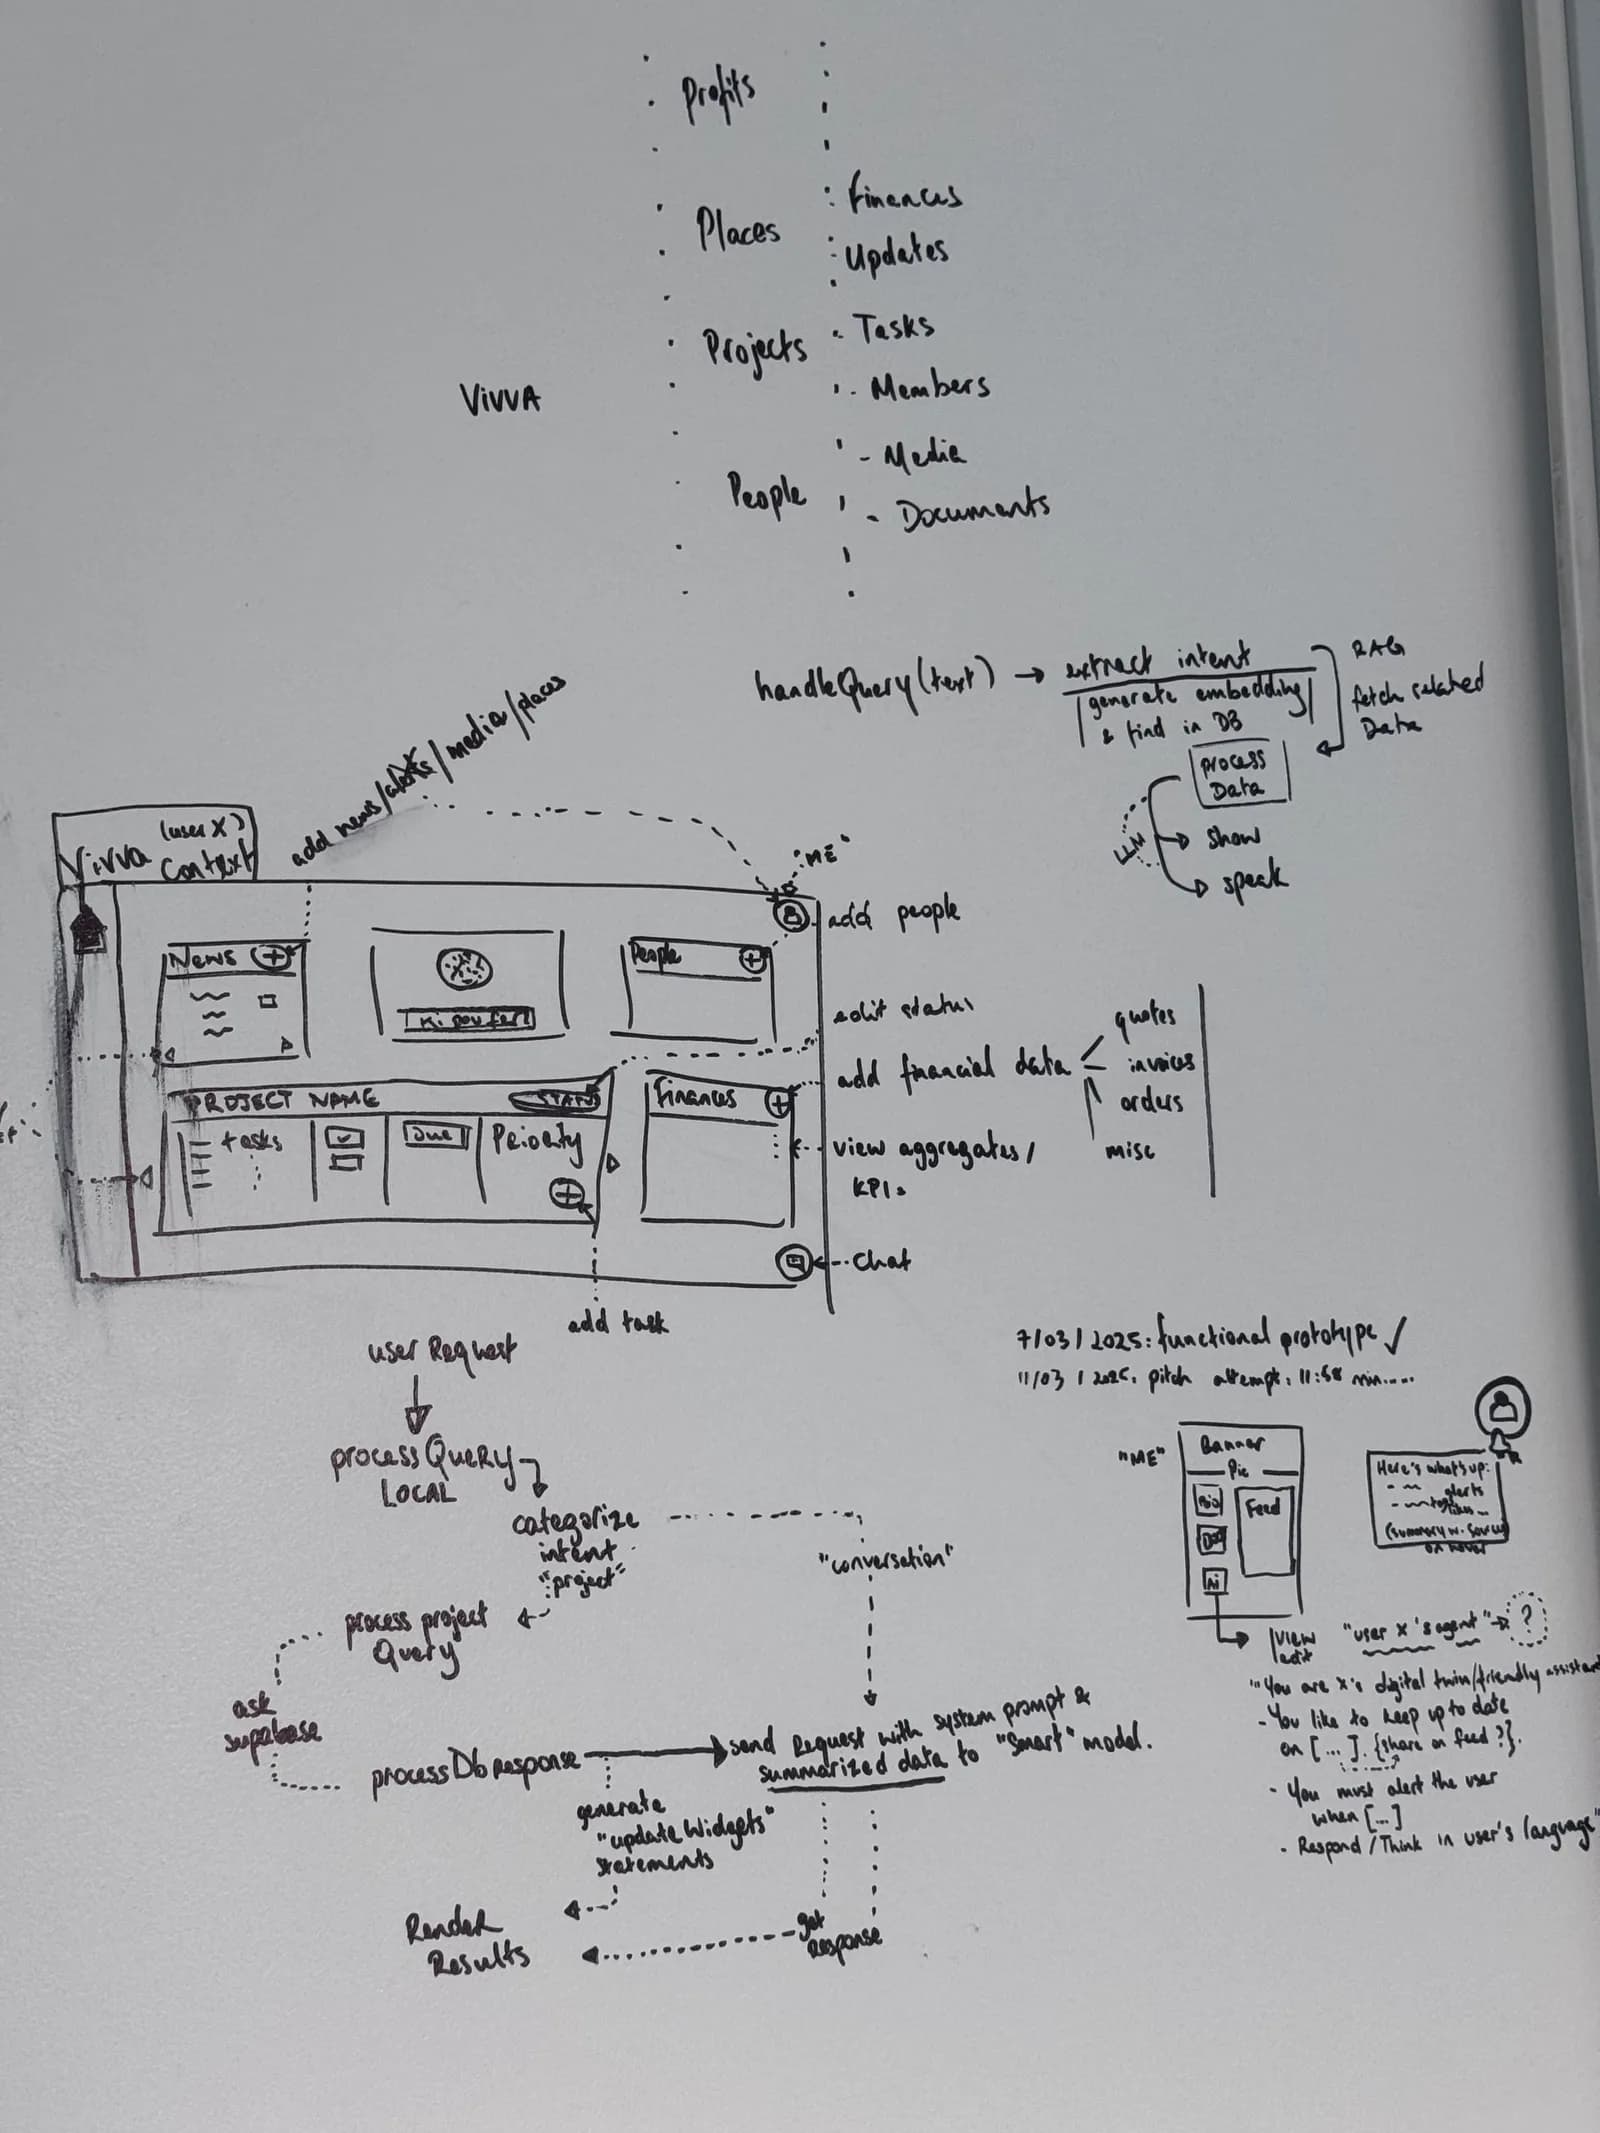 Profits
Places
Projects
People
Finances
Updates
Tasks
- Members
- Media
- Documents
VIVVA
handleQuery(text) → extract intent
generate embedding
& find in DB
RAG
fetch related
Data
process
Data
LLM
show
speak
add news/alerts/media/places
Vivva (user X)
Context
"ME"
add people
News +
People +
edit status
add financial data
quotes
invoices
orders
misc
PROJECT NAME STATUS
tasks
Due
Priority
+
Finances +
view aggregates/
KPIs
chat
add task
user Request
processQuery
LOCAL
categorize
intent
"project"
"conversation"
process project
Query
ask
supabase
processDbResponse
send Request with system prompt &
summarized data to "smart" model.
generate
"updateWidgets"
statements
Render
Results
get
Response
7/03/2025: functional prototype ✓
11/03/2025: pitch attempt: 11:58 min.....
"ME"
Banner
Pic
Bio
Feed
Ai
Here's what's up:
- alerts
(summary w. sources
on hover
view
edit
"user x's agent" → ?
"You are x's digital twin/friendly assistant
- You like to keep up to date
on [...]. {share on feed?}.
- You must alert the user
when [...]
- Respond/Think in user's language"